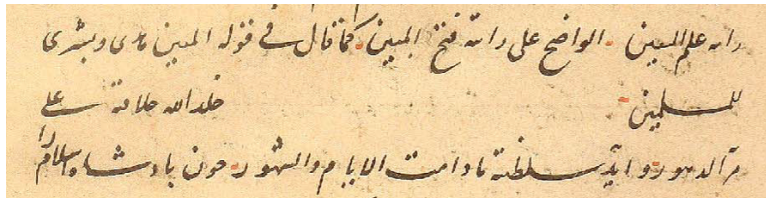 رایه علم للمسلمین الواضح علی رایة فتح المبین کما قال فی قوله المبین هدی وبشری
للمسلمین خلد الله خلافته علی
مر الدهور و اید سلطنته مادامت الایام والشهور چون پادشاه اسلام را